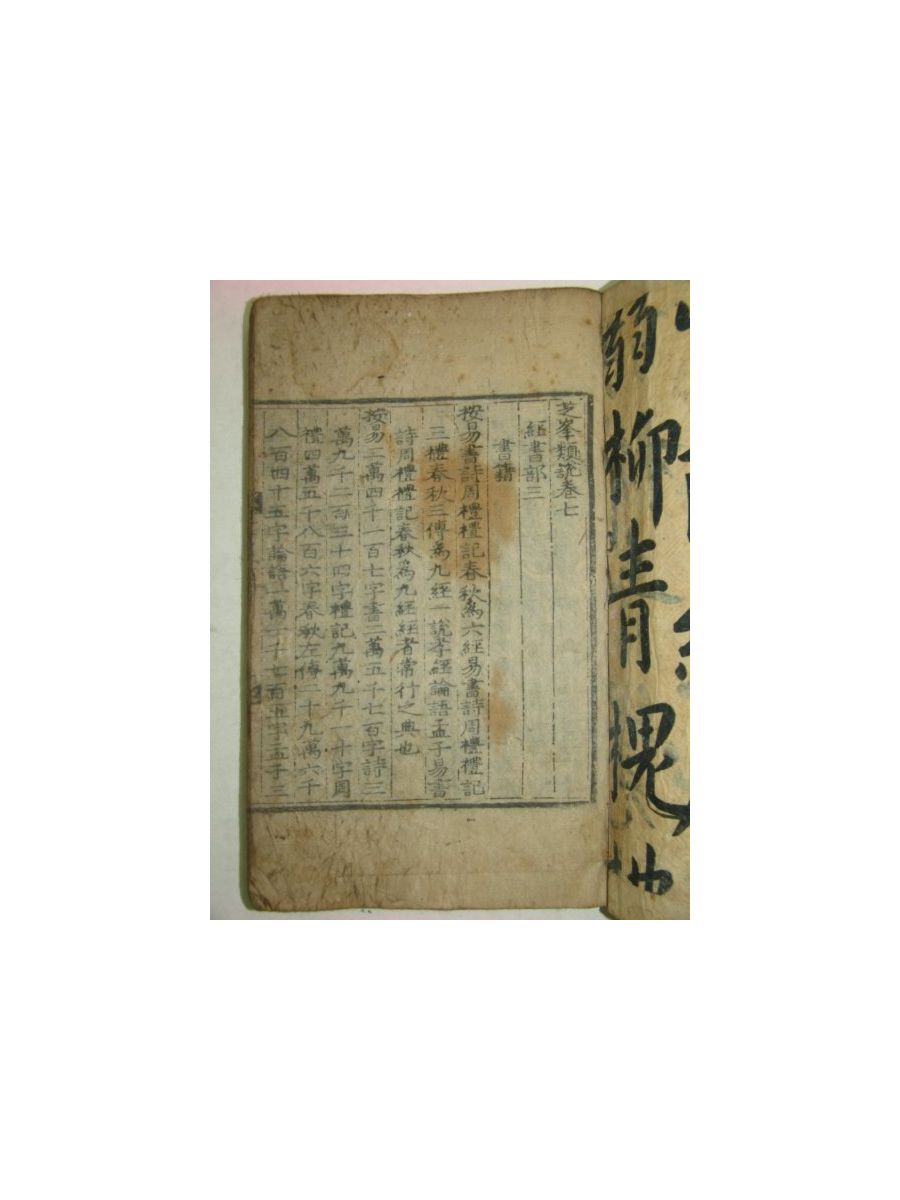 芝峯類說卷七
經書部三
書籍
按易書詩周禮禮記春秋爲六經易書詩周禮禮記
三禮春秋三傳爲九經一說孝經論語孟子易書
詩周禮禮記春秋爲九經經者常行之典也
按易二萬四千一百七字書二萬五千七百字詩三
萬九千二百三十四字禮記九萬九千一十字周
禮四萬五千八百六字春秋左傳一十九萬六千
八百四十五字論語一萬一千七百五字孟子三
弱柳青槐